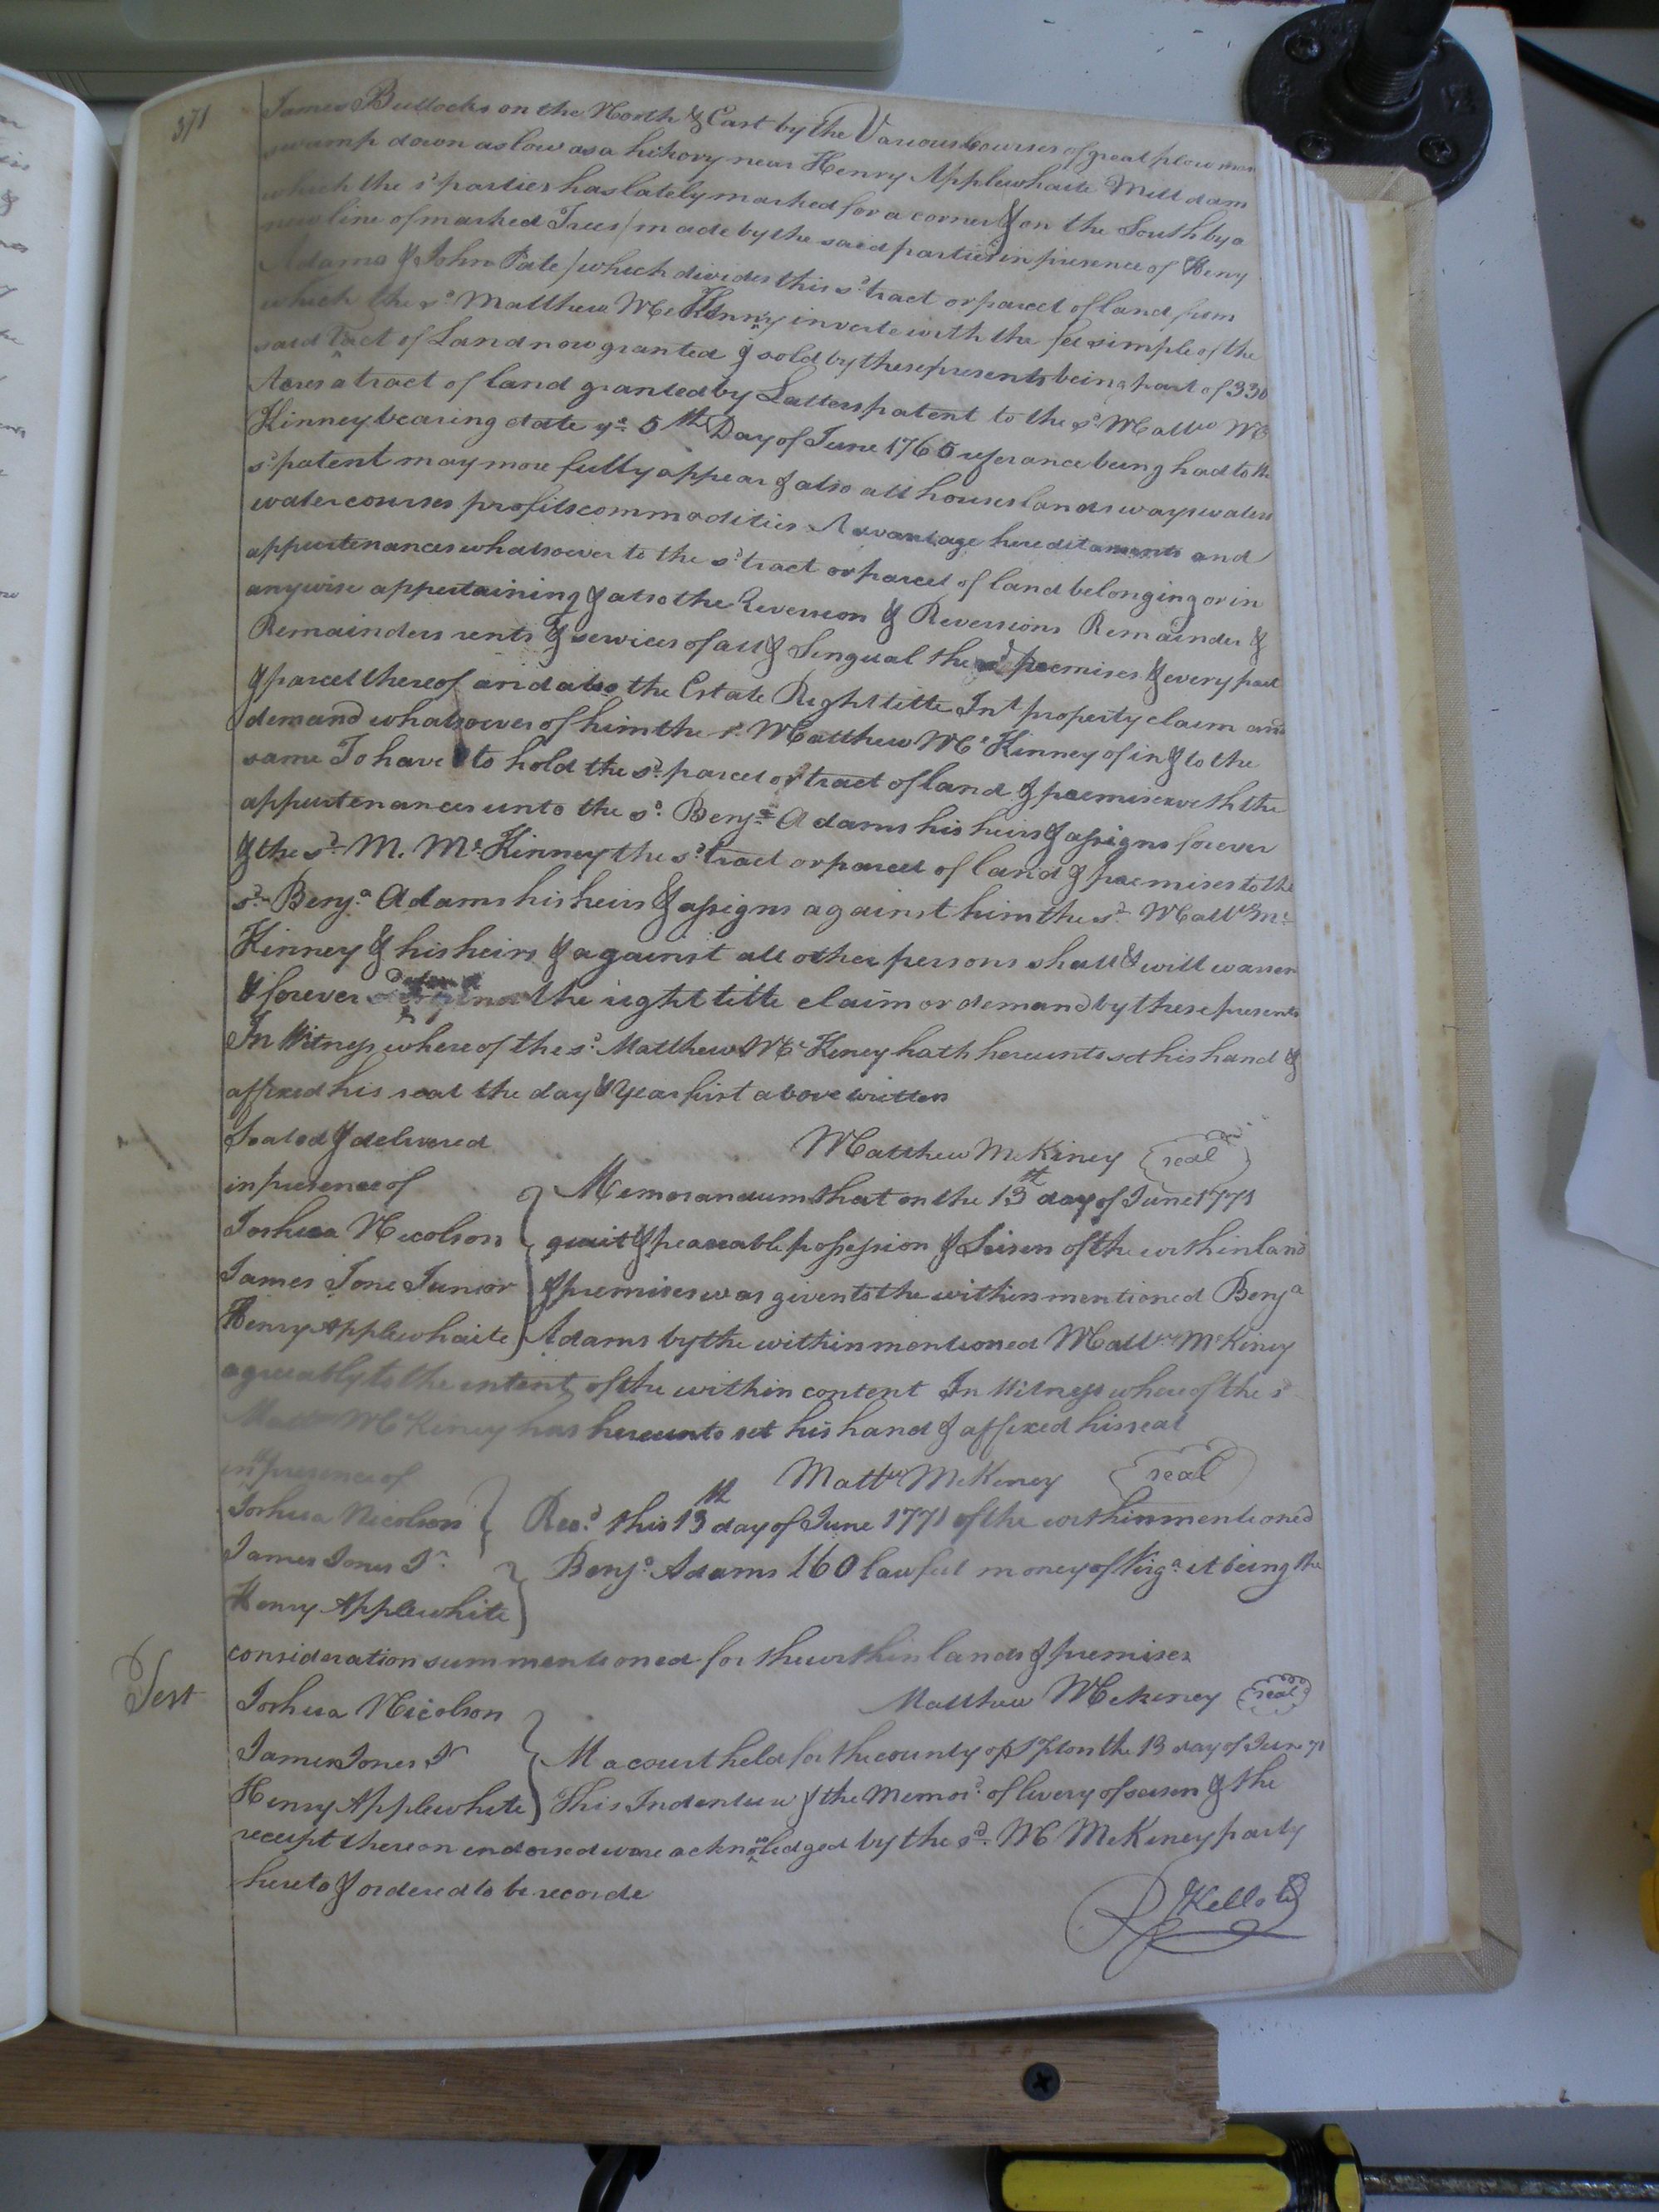 371
James Bullocks on the North & East by the Various Courses of great plow man
swamp down as low as a hikory near Henry Applewhaite Mill dam
which the sd parties has lately marked for a corner & on the South by a
new line of marked Trees / made by the said parties in presence of Heny
Adams & John Pate / which divides this sd tract or parcel of land from
which the sd Matthew Mc Kinny investe with the fee simple of the
said tract of Land now granted & sold by these presents being part of 330
Acres a tract of land granted by Letters patent to the sd Mattw Mc
Kinney bearing date ye 5th Day of June 1765 referance being had to the
sd patent may more fully appear & also all houses lands ways waters
water courses profits commodities Advantage hereditaments and
appurtenances whatsoever to the sd tract or parcel of land belonging or in
anywise appertaining & also the Reversion & Reversions Remainder &
Remainders rents & services of all & Singual the sd premises & every part
& parcel thereof and also the Estate Right title Int property claim and
demand whatsoever of him the sd Matthew Mc Kinney of in & to the
same To have & to hold the sd parcel or tract of land & premises with the
appurtenances unto the sd Benja Adams his heirs & assigns forever
& the sd M. Mc Kinney the sd tract or parcel of land & premises to the
sd Benja Adams his heirs & assigns against him the sd Mattw Mc
Kinney & his heirs & against all other persons shall & will warren
& forever Defend the right title claim or demand by these presents
In Witness whereof the sd Matthew Mc Keney hath hereunto set his hand &
affixed his seal the day & Year first above written
Sealed & delivered
Matthew McKiney seal
in presence of
Memorandum that on the 13th day of June 1771
Joshua Nicolson
quiet & peaceable possession & Seisen of the within land
James Jone Junior
& premises was given to the within mentioned Benja
Henry Applewhaite
Adams by the within mentioned Mattw McKiney
agreeably to the intent of the within content In Witness whereof the sd
Mattw McKiney has hereunto set his hand & affixed his seal
in presence of
Mattw McKeney seal
Joshua Nicolson
Recd this 13th day of June 1771 of the within mentioned
James Jones Jr
Benja Adams 160 lawful money of Virga it being the
Henry Applewhite
consideration sum mentioned for the within lands & premises
Test
Joshua Nicolson
Matthew Mckeney seal
James Jones Jr
At a court held for the county of on the 13 day of June 71
Henry Applewhite
This Indenture & the Memod of livery of seisen & the
receipt thereon endorsed were acknowledged by the sd M McKeney party
hereto & ordered to be recorde
R Kello